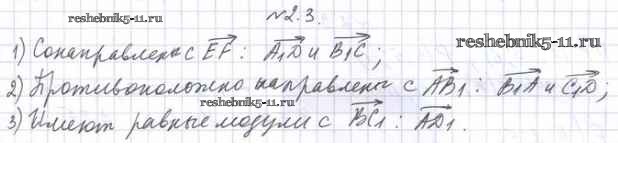 №2.3.
reshebnik5-11.ru
1) Сонаправлены с EF: A₁D и B₁C;
reshebnik5-11.ru
2) Противоположно направлены с AB₁: B₁A и C₁D;
reshebnik5-11.ru
3) Имеют равные модули с BC₁: AD₁.